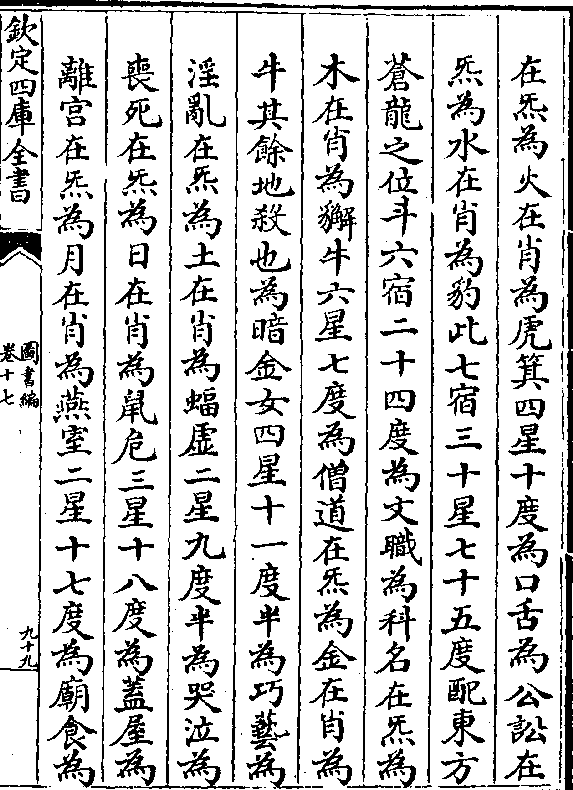 在炁為火在肖為虎箕四星十度為口舌為公訟在
炁為水在肖為豹此七宿三十星七十五度配東方
蒼龍之位斗六宿二十四度為文職為科名在炁為
木在肖為獬牛六星七度為僧道在炁為金在肖為
牛其餘地殺也為暗金女四星十一度半為巧藝為
淫亂在炁為土在肖為蝠虛二星九度半為哭泣為
喪死在炁為日在肖為鼠危三星十八度為蓋屋為
離宮在炁為月在肖為燕室二星十七度為廟食為
欽定四庫全書
圖書編
卷十七
九十九